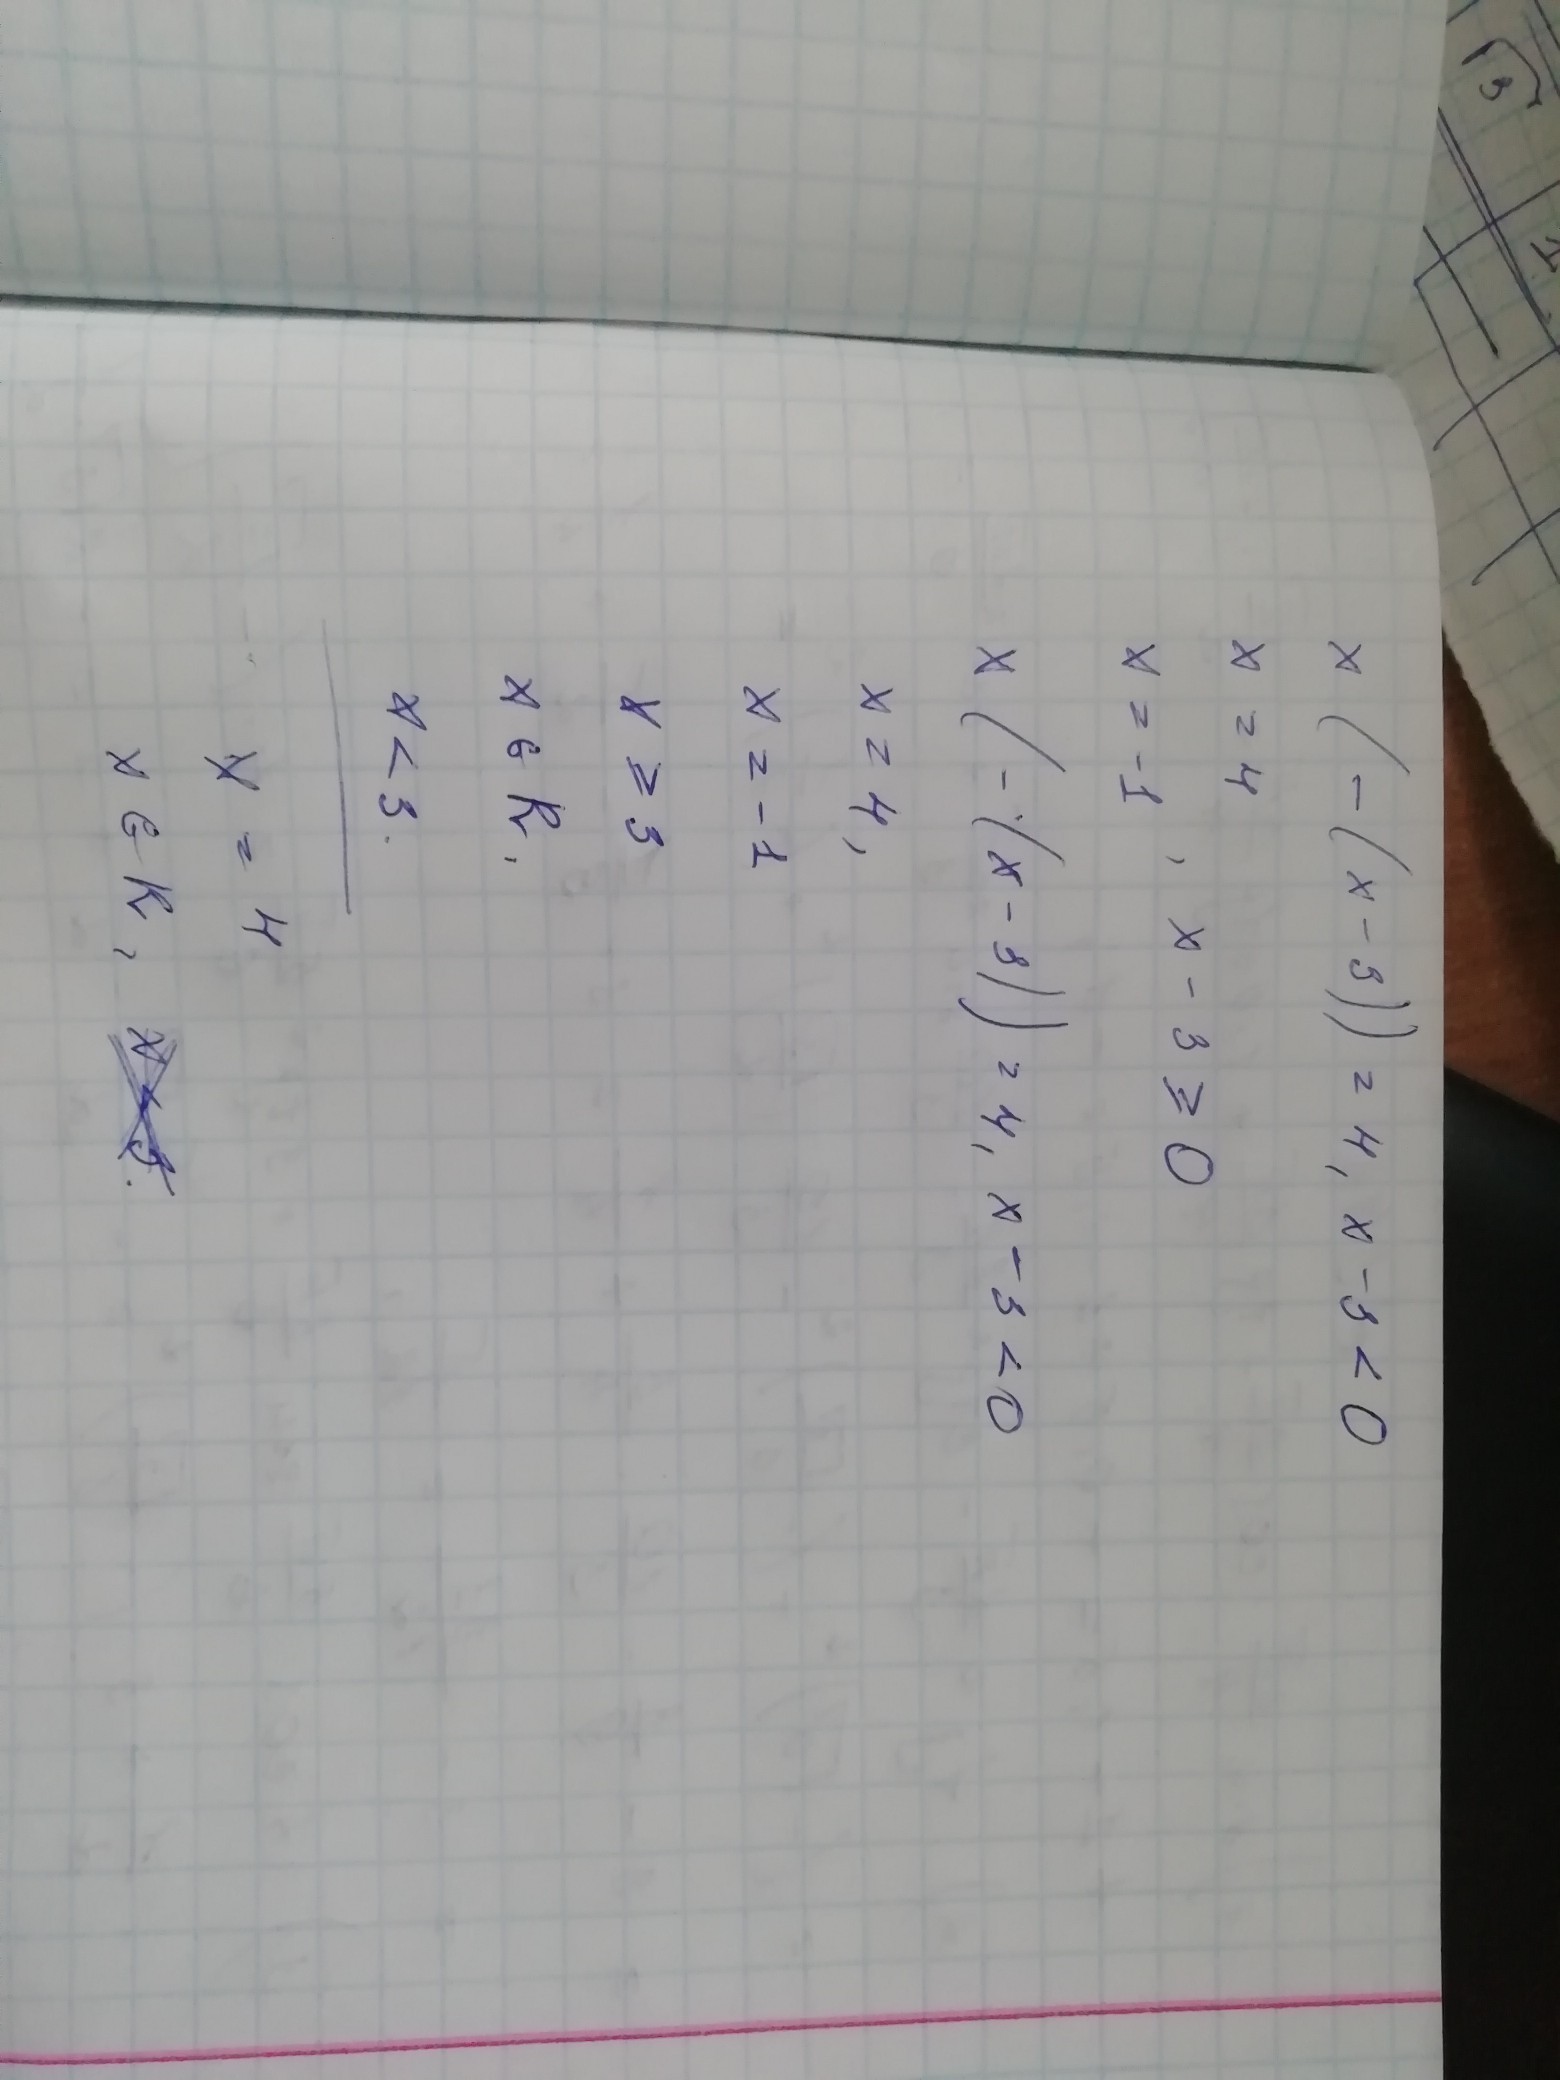 x(-(x-3))=4, x-3<0
x=4
x=-1, x-3⩾0
x(-(x-3))=4, x-3<0
x=4,
x=-1
x⩾3
x∈R,
x<3.
x=4
x∈R,